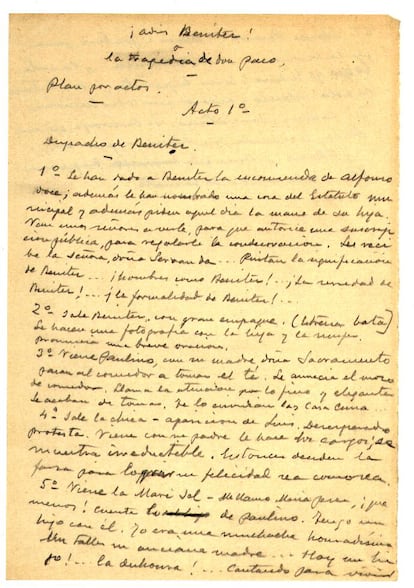 ¡adiós Benítez!
o
la tragedia de don Paco.
Plan por actos.
Acto 1º
Despacho de Benítez.
1º Se han dado a Benítez la encomienda de Alfonso
doce; además le han nombrado una cosa del Estatuto mu-
nicipal y además piden aquel día la mano de su hija.
Vienen unos señores a verle, para que autorice una suscrip
ción pública, para regalarle la condecoración. Les reci-
be la señora, doña Servanda... Pintan la significación
de Benítez... ¡Hombres como Benítez!.. ¡La seriedad de
Benítez!... ¡la formalidad de Benítez!..
2º Sale Benítez, con gran empaque. (bata)
Se hacen una fotografía con la hija y la mujer.
pronuncia una breve oración.
3º Viene Paulino, con su madre doña Sacramento
pasan al comedor a tomar el té. Se anuncia el mozo
de comedor. Llama la atención por lo fino y elegante
Se acaban de tomar. Se lo envidian las Casa Cuna...
4º Sale la chica - aparición de Luis. Desesperado
protesta. Viene con su padre le hace los cargos; se
muestra irreductible. Entonces deciden la
farsa para su felicidad sea
5º Viene la Mari Sol - Me llamo María ¡qué
menos! Cuenta de Paulino. Tengo un
hijo con él. Yo era una muchacha honradísima
Un taller mi anciana madre... Hay un hi-
jo!.. la deshonra!.. Cantando para vivir